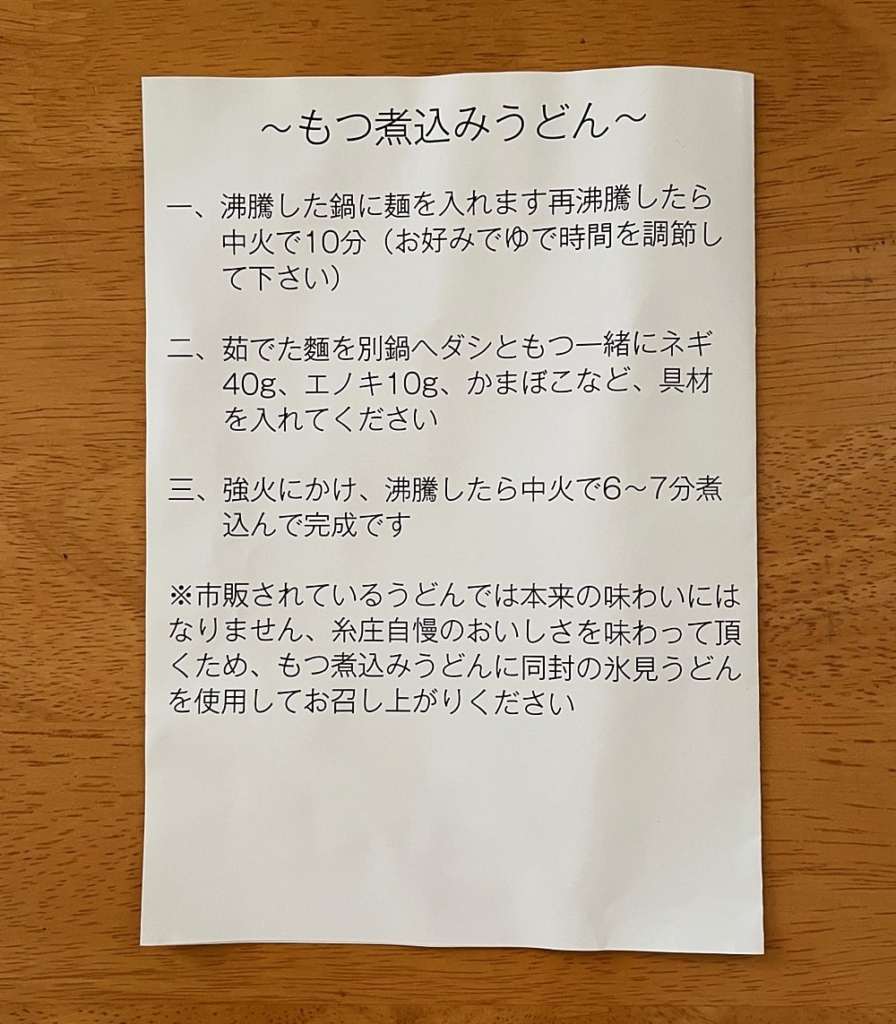 ～もつ煮込みうどん～
一、沸騰した鍋に麺を入れます再沸騰したら
中火で10分（お好みでゆで時間を調節し
て下さい）
二、茹でた麺を別鍋へダシともつ一緒にネギ
40g、エノキ10g、かまぼこなど、具材
を入れてください
三、強火にかけ、沸騰したら中火で6～7分煮
込んで完成です
※市販されているうどんでは本来の味わいには
なりません、糸庄自慢のおいしさを味わって頂
くため、もつ煮込みうどんに同封の氷見うどん
を使用してお召し上がりください